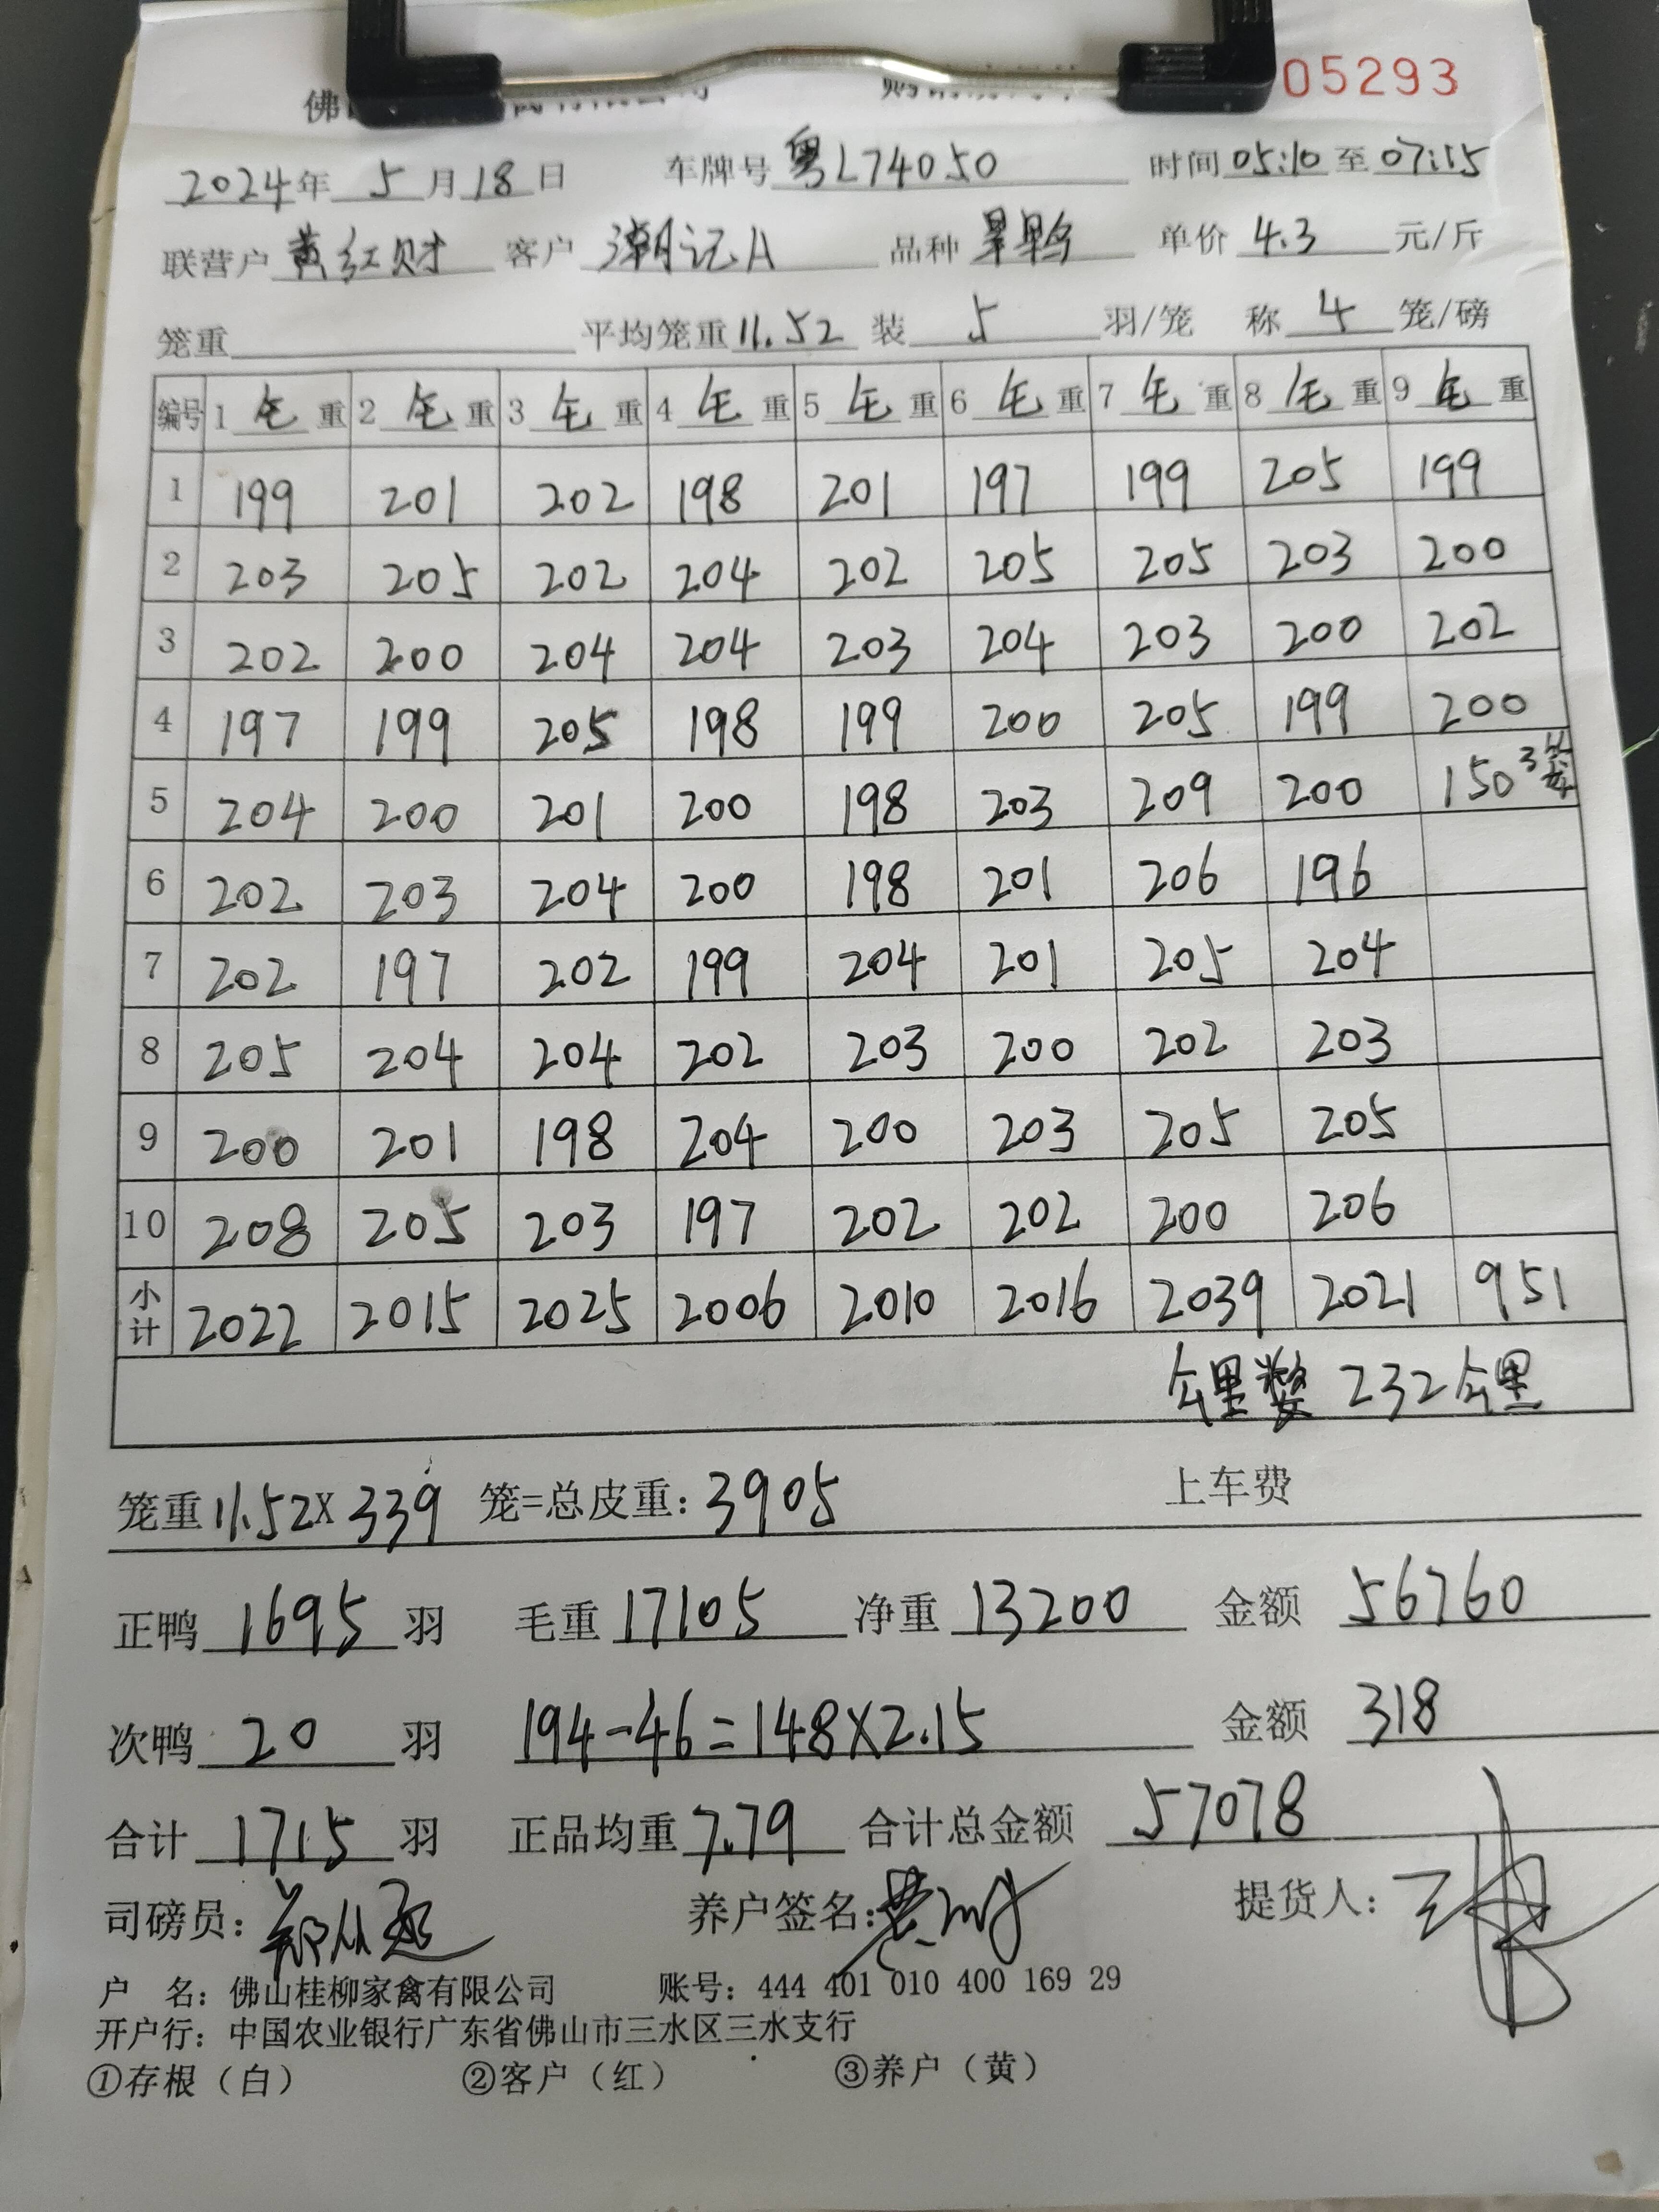 05293
2024年 5月18日 车牌号 粤L74050 时间 05:10 至 07:15
联营户 黄红财 客户 潮记A 品种 单价 4.3 元/斤
笼重 平均笼重 11.52 装 5 羽/笼 称 4 笼/磅
编号 1 毛 重 2 毛 重 3 毛 重 4 毛 重 5 毛 重 6 毛 重 7 毛 重 8 毛 重 9 毛 重
1 199 201 202 198 201 197 199 205 199
2 203 205 202 204 202 205 205 203 200
3 202 200 204 204 203 204 203 200 202
4 197 199 205 198 199 200 205 199 200
5 204 200 201 200 198 203 209 200 150 3笼
6 202 203 204 200 198 201 206 196
7 202 197 202 199 204 201 205 204
8 205 204 204 202 203 200 202 203
9 200 201 198 204 200 203 205 205
10 208 205 203 197 202 202 200 206
小计 2022 2015 2025 2006 2010 2016 2039 2021 951
公里数 232公里
笼重 11.52X 339 笼=总皮重: 3905 上车费
正鸭 1695 羽 毛重 17105 净重 13200 金额 56760
次鸭 20 羽 194-46=148X2.15 金额 318
合计 1715 羽 正品均重 7.79 合计总金额 57078
司磅员: 养户签名: 提货人:
户 名: 佛山桂柳家禽有限公司 账号: 444 401 010 400 169 29
开户行: 中国农业银行广东省佛山市三水区三水支行
①存根（白） ②客户（红） ③养户（黄）